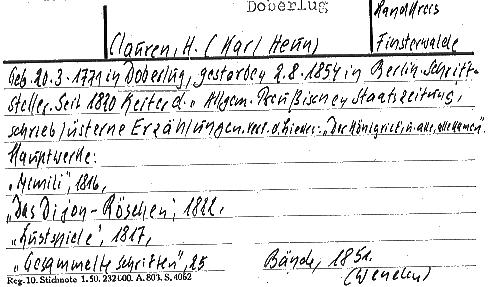 Doberlug
Landkreis
Clauren, H. (Karl Heun)
Finsterwalde
Geb. 20.3.1771 in Doberlug, gestorben 2.8.1854 in Berlin. Schrift-
steller. Seit 1820 Leiter d. „Allgem. Preußischen Staatszeitung,
schrieb lüsterne Erzählungen. Verf. d. Liedes: „Der König rief, u. alle, alle kamen".
Hauptwerke:
„Mimili", 1816,
„Das Dijon-Röschen", 1822,
„Lustspiele", 1817,
„Gesammelte Schriften", 25 Bände, 1851.
(Wenden)
Reg. 10. Stichnote 1. 50. 232000. A. 803. S. 4062